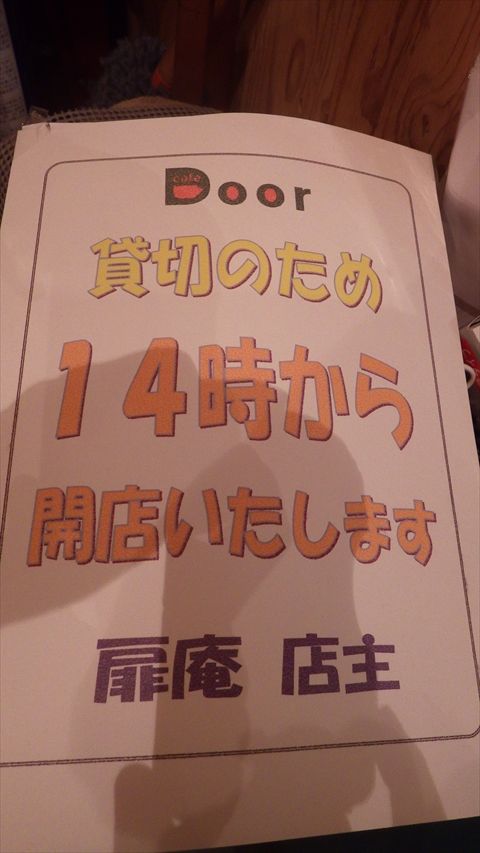 cafe
Door
貸切のため
14時から
開店いたします
扉庵 店主